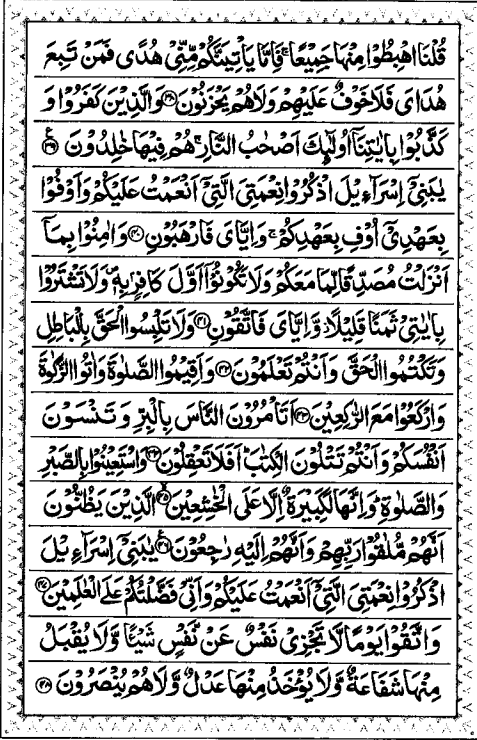 قُلْنَا اهْبِطُوْا مِنْهَا جَمِيْعًا ۚ فَاِمَّا يَاْتِيَنَّكُمْ مِّنِّيْ هُدًى فَمَنْ تَبِعَ
هُدَايَ فَلَا خَوْفٌ عَلَيْهِمْ وَلَا هُمْ يَحْزَنُوْنَ ۝۳۸ وَالَّذِيْنَ كَفَرُوْا وَ
كَذَّبُوْا بِاٰيٰتِنَآ اُولٰٓئِكَ اَصْحٰبُ النَّارِ ۚ هُمْ فِيْهَا خٰلِدُوْنَ ۝۳۹ ع
يٰبَنِيْٓ اِسْرَآءِيْلَ اذْكُرُوْا نِعْمَتِيَ الَّتِيْٓ اَنْعَمْتُ عَلَيْكُمْ وَاَوْفُوْا
بِعَهْدِيْٓ اُوْفِ بِعَهْدِكُمْ ۚ وَاِيَّايَ فَارْهَبُوْنِ ۝۴۰ وَاٰمِنُوْا بِمَآ
اَنْزَلْتُ مُصَدِّقًا لِّمَا مَعَكُمْ وَلَا تَكُوْنُوْٓا اَوَّلَ كَافِرٍۢ بِهٖ ۪ وَلَا تَشْتَرُوْا
بِاٰيٰتِيْ ثَمَنًا قَلِيْلًا ؗ وَّاِيَّايَ فَاتَّقُوْنِ ۝۴۱ وَلَا تَلْبِسُوا الْحَقَّ بِالْبَاطِلِ
وَتَكْتُمُوا الْحَقَّ وَاَنْتُمْ تَعْلَمُوْنَ ۝۴۲ وَاَقِيْمُوا الصَّلٰوةَ وَاٰتُوا الزَّكٰوةَ
وَارْكَعُوْا مَعَ الرّٰكِعِيْنَ ۝۴۳ اَتَاْمُرُوْنَ النَّاسَ بِالْبِرِّ وَتَنْسَوْنَ
اَنْفُسَكُمْ وَاَنْتُمْ تَتْلُوْنَ الْكِتٰبَ ؕ اَفَلَا تَعْقِلُوْنَ ۝۴۴ وَاسْتَعِيْنُوْا بِالصَّبْرِ
وَالصَّلٰوةِ ؕ وَاِنَّهَا لَكَبِيْرَةٌ اِلَّا عَلَى الْخٰشِعِيْنَ ۝۴۵ الَّذِيْنَ يَظُنُّوْنَ
اَنَّهُمْ مُّلٰقُوْا رَبِّهِمْ وَاَنَّهُمْ اِلَيْهِ رٰجِعُوْنَ ۝۴۶ ع يٰبَنِيْٓ اِسْرَآءِيْلَ
اذْكُرُوْا نِعْمَتِيَ الَّتِيْٓ اَنْعَمْتُ عَلَيْكُمْ وَاَنِّيْ فَضَّلْتُكُمْ عَلَى الْعٰلَمِيْنَ ۝۴۷
وَاتَّقُوْا يَوْمًا لَّا تَجْزِيْ نَفْسٌ عَنْ نَّفْسٍ شَيْـًٔا وَّلَا يُقْبَلُ
مِنْهَا شَفَاعَةٌ وَّلَا يُؤْخَذُ مِنْهَا عَدْلٌ وَّلَا هُمْ يُنْصَرُوْنَ ۝۴۸